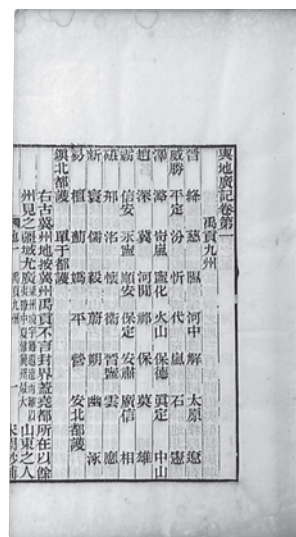 輿地廣記卷第一
禹貢九州
晉 絳 慈 隰 河中 解 太原 遼
威勝 平定 汾 忻 代 嵐 石 憲
澤 潞 岢嵐 寧化 火山 保德 眞定 中山
趙 深 冀 河閒 祁 保 莫 雄
霸 信安 永寧 順安 保定 安肅 廣信 相
磁 邢 洺 懷 衛 晉寧 雲 應
新 寰 儒 毅 蔚 朔 幽 涿
易 檀 薊 嬀 平 營 安北都護
鎭北都護 單于都護
右古冀州地按冀州禹貢不言封界蓋堯都所在以餘
州見之疆域尤廣 山東之人